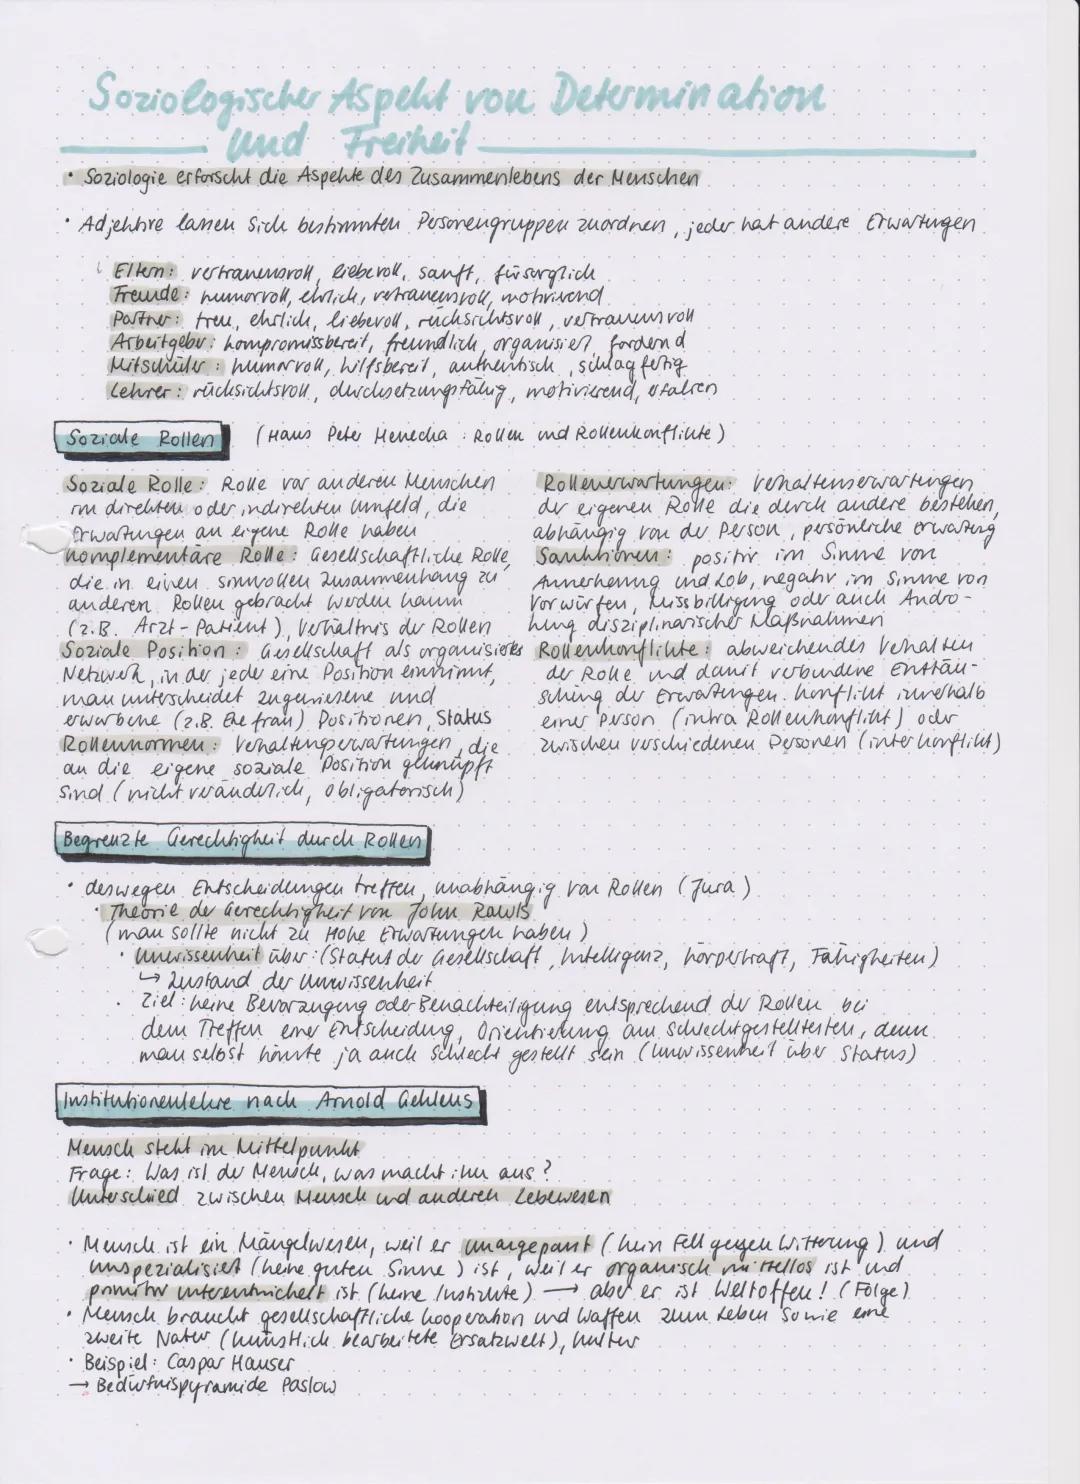 Soziologischer Aspekt von Determination
und Freiheit
• Soziologie erforscht die Aspekte des Zusammenlebens der Menschen
• Adjektive lassen Sich bestimmten Personengruppen zuordnen, jeder hat andere Erwartungen
Eltern: vertrauensvoll, liebevoll, sanft, fürsorglich
Freunde: humorvoll, ehrlich, vertrauensvoll, motivierend
Partner: treu, ehrlich, liebevoll, rücksichtsvoll, vertrauensvoll
Arbeitgeber: kompromissbereit, freundlich, organisiert, fordernd
Mitschüler: humorvoll, hilfsbereit, authentisch, schlagfertig
Lehrer: rücksichtsvoll, durchsetzungsfähig, motivierend, erfahren
Soziale Rollen (Hans Peter Henecka: Rollen und Rollenkonflikte)
Soziale Rolle: Rolle vor anderen Menschen
im direkten oder indirekten Umfeld, die
Erwartungen an eigene Rolle haben
Komplementäre Rolle: Gesellschaftliche Rolle,
die in einen sinnvollen Zusammenhang zu
anderen Rollen gebracht werden kann
(z.B. Arzt-Patient), Verhältnis der Rollen
Soziale Position: Gesellschaft als organisiertes
Netzwerk, in der jeder eine Position einnimmt,
man unterscheidet zugewiesene und
erworbene (z.B. Ehefrau) Positionen, Status
Rollennormen: Verhaltungserwartungen, die
an die eigene soziale Position geknüpft
sind (nicht veränderlich, obligatorisch)
Rollenerwartungen: Verhaltenserwartungen
der eigenen Rolle die durch andere bestehen,
abhängig von der Person, persönliche Erwartung
Sanktionen: positiv im Sinne von
Annerkennung und Lob, negativ im Sinne von
Vorwürfen, Missbilligung oder auch Andro-
hung disziplinarischer Maßnahmen
Rollenkonflikte: abweichendes Verhalten
der Rolle und damit verbundene Enttäu-
schung der Erwartungen. Konflikt innerhalb
einer Person (intra Rollenkonflikt) oder
zwischen verschiedenen Personen (inter konflikt)
Begrenzte Gerechtigkeit durch Rollen
• deswegen Entscheidungen treffen, unabhängig von Rollen (Jura)
• Theorie der Gerechtigkeit von John Rawls
(man sollte nicht zu Hohe Erwartungen haben)
• Unwissenheit über: (Status der Gesellschaft, Intelligenz, Körperkraft, Fähigkeiten)
↳ Zustand der Unwissenheit
• Ziel: keine Bevorzugung oder Benachteiligung entsprechend der Rollen bei
dem Treffen einer Entscheidung, Orientierung am schlechtgestelltesten, denn
man selbst könnte ja auch schlecht gestellt sein (Unwissenheit über Status)
Institutionenlehre nach Arnold Gehlens
Mensch steht im Mittelpunkt
Frage: Was ist der Mensch, was macht ihn aus?
Unterschied zwischen Mensch und anderen Lebewesen
• Mensch ist ein Mängelwesen, weil er unangepasst (kein Fell gegen Witterung) und
unspezialisiert (keine guten Sinne) ist, weil er organisch mittellos ist und
primitiv unterentwickelt ist (keine Instinkte) → aber er ist Weltoffen! (Folge)
• Mensch braucht gesellschaftliche Kooperation und Waffen zum Leben Sowie eine
zweite Natur (künstlich bearbeitete Ersatzwelt), Kultur
• Beispiel: Caspar Hauser
→ Bedürfnispyramide Paslow